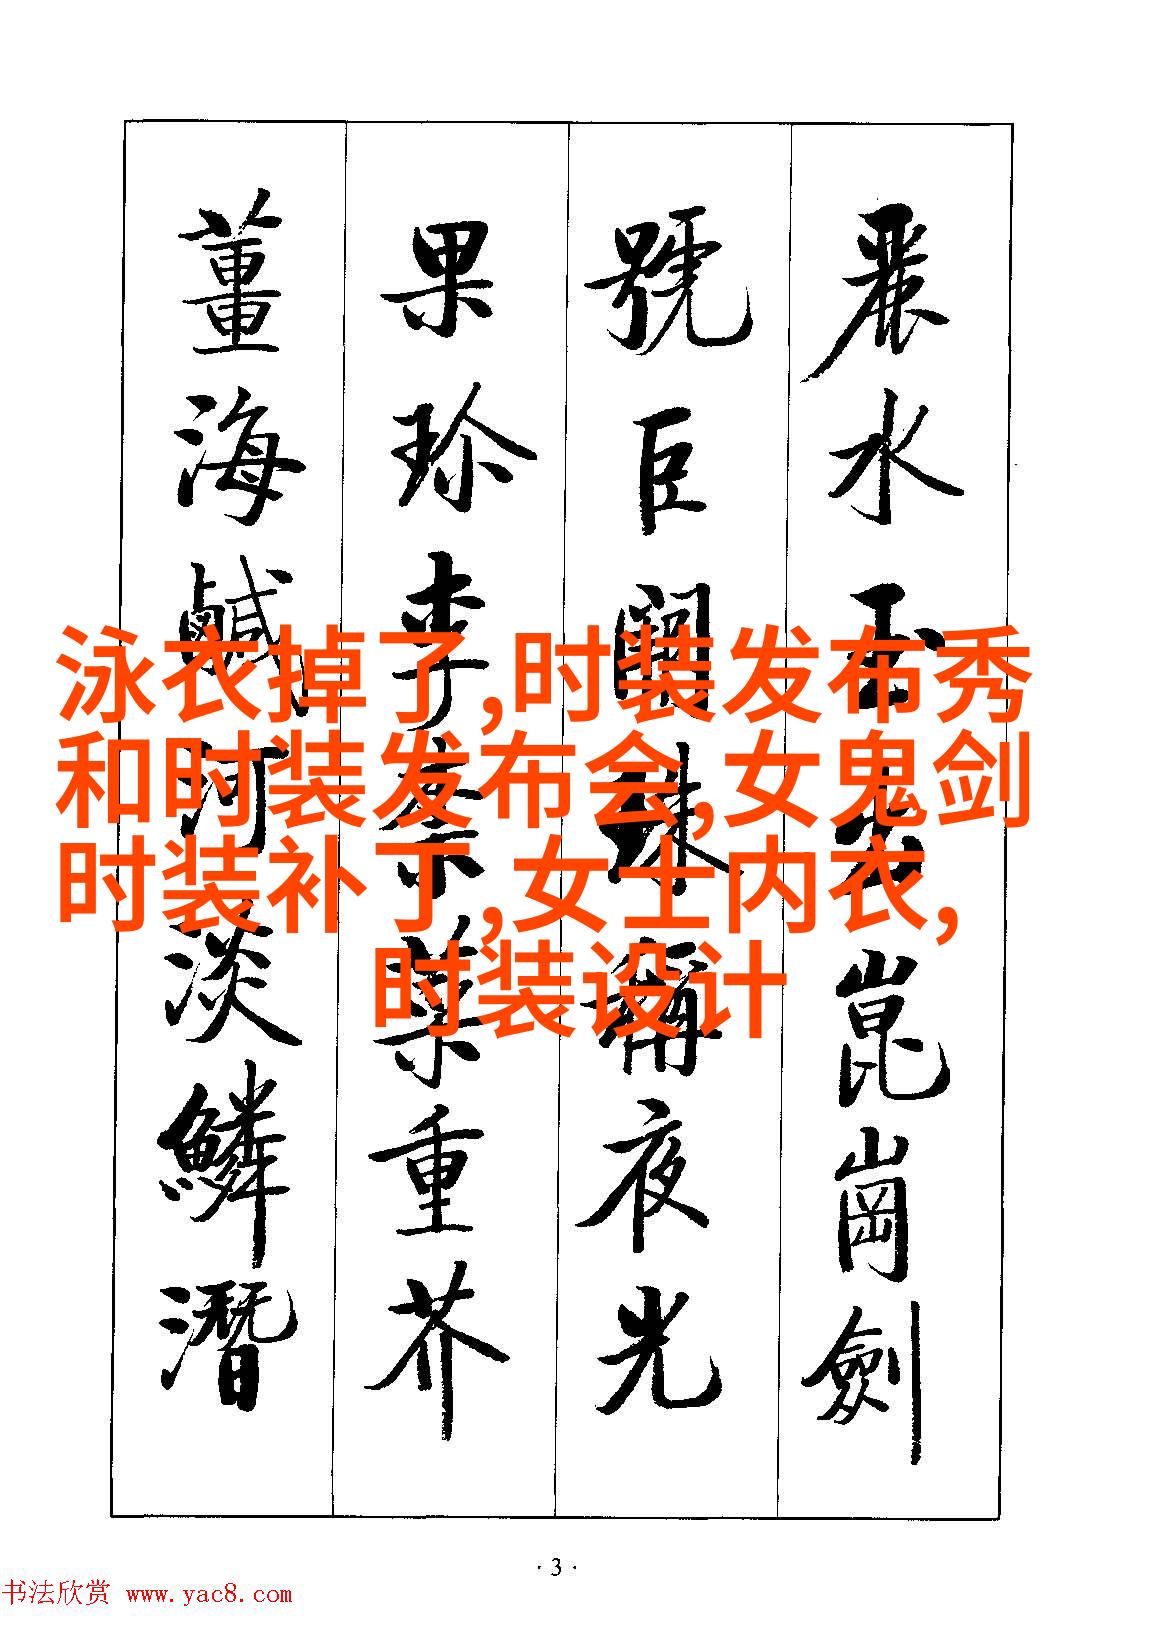 麗水玉出崑崗劍
號巨闕珠稱夜光
果珍李柰菜重芥
薑海鹹河淡鱗潛
泳衣掉了,时装发布秀
和时装发布会,女鬼剑
时装补丁,女士内衣,
时装设计
·3·
书法欣赏 www.yac8.com